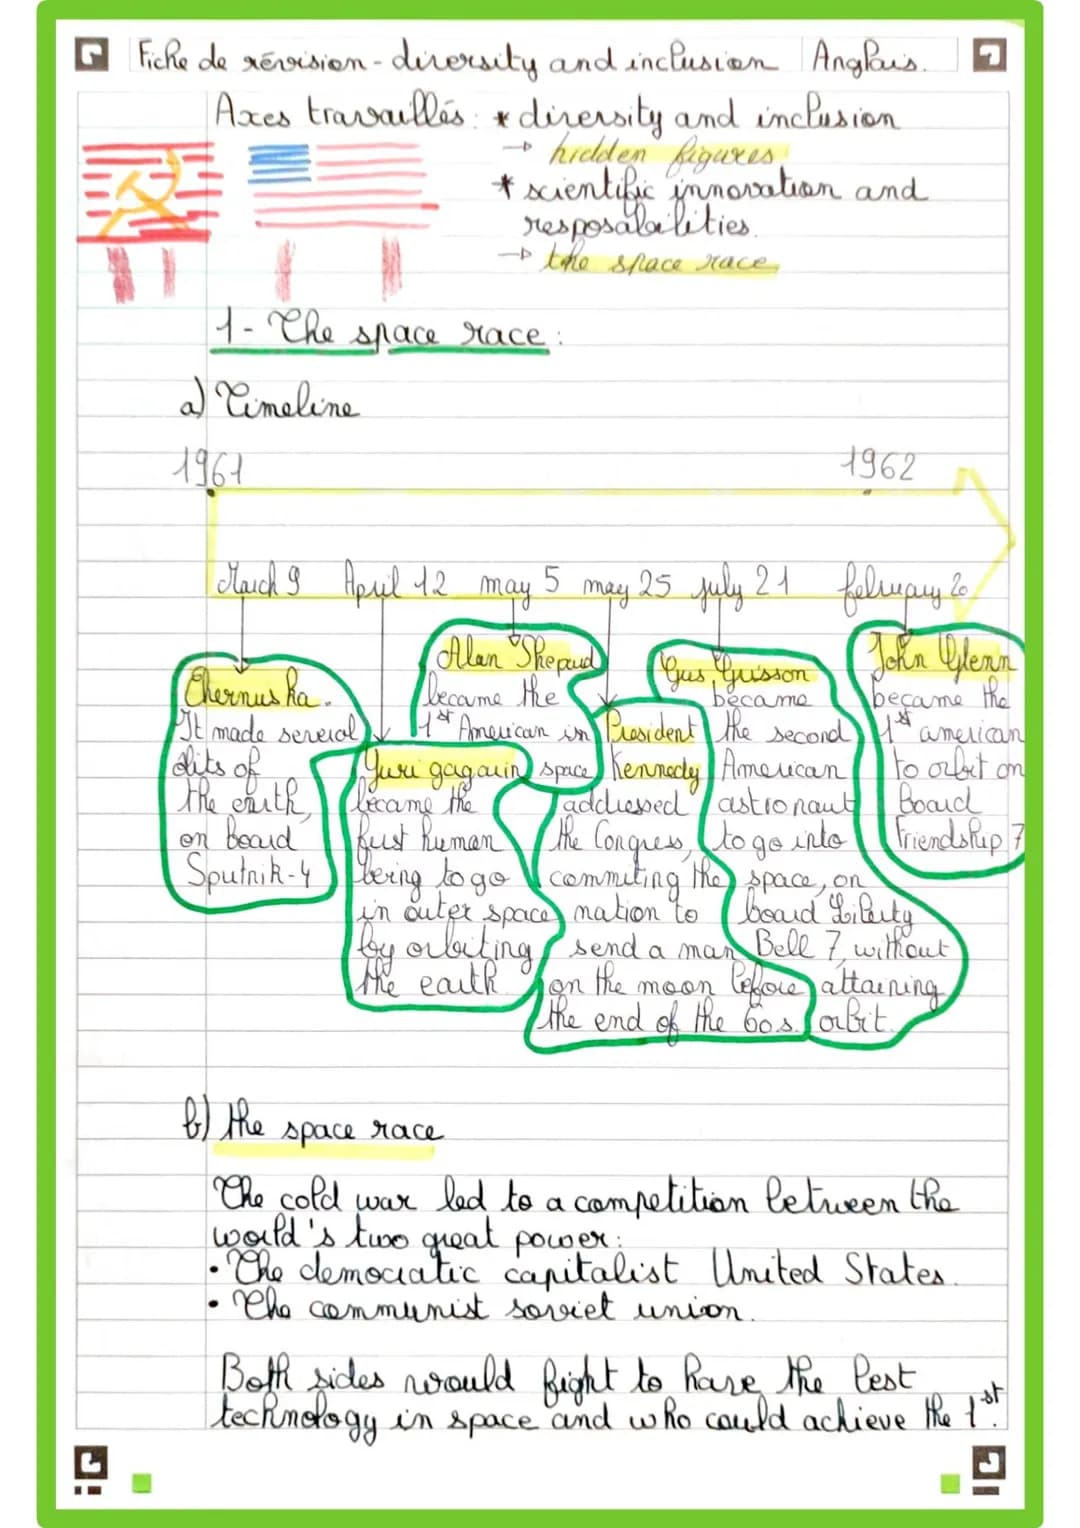 Fiche de révision - diversity and inclusion Anglais.
Axes travaillés: * diversity and inclusion
→ hidden figures
* scientific innovation and
resposabilities.
→ the space race
1- The space race:
a) Timeline
1961 1962
March 9 April 12 may 5 may 25 july 21 february 20
Chernuska.
It made several
olits of
the earth,
on board
Sputnik-4
Yuri gagarin
became the
first human
being to go
in outer space
by orbiting
the earth.
Alan Shepard
became the
1st American in
space
President
Kennedy
addressed
the Congress,
commiting the
nation to
send a man
on the moon before
the end of the 60s.
Gus Grisson
became
the second
American
astronaut
to go into
space, on
board Liberty
Bell 7, without
attaining
orbit.
John Glenn
became the
1st american
to orbit on
Board
Friendship 7
b) the space race
The cold war led to a competition between the
world's two great power:
• The democratic capitalist United States.
• The communist soviet union.
Both sides would fight to have the best
technology in space and who could achieve the 1st.